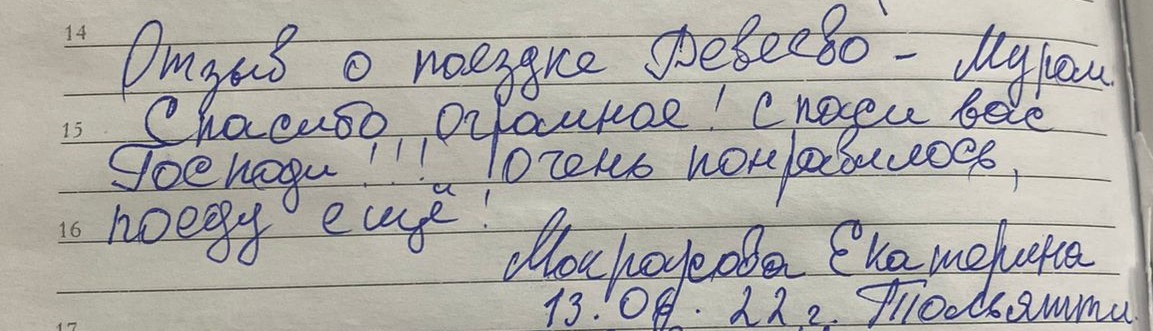 14
Отзыв о поездке Девеево - Муром.
15 Спасибо огромное! Спаси вас
Господи!!! Очень понравилось,
16 поеду ещё!
Екатерина
13. 22 г. Тольятти.
17